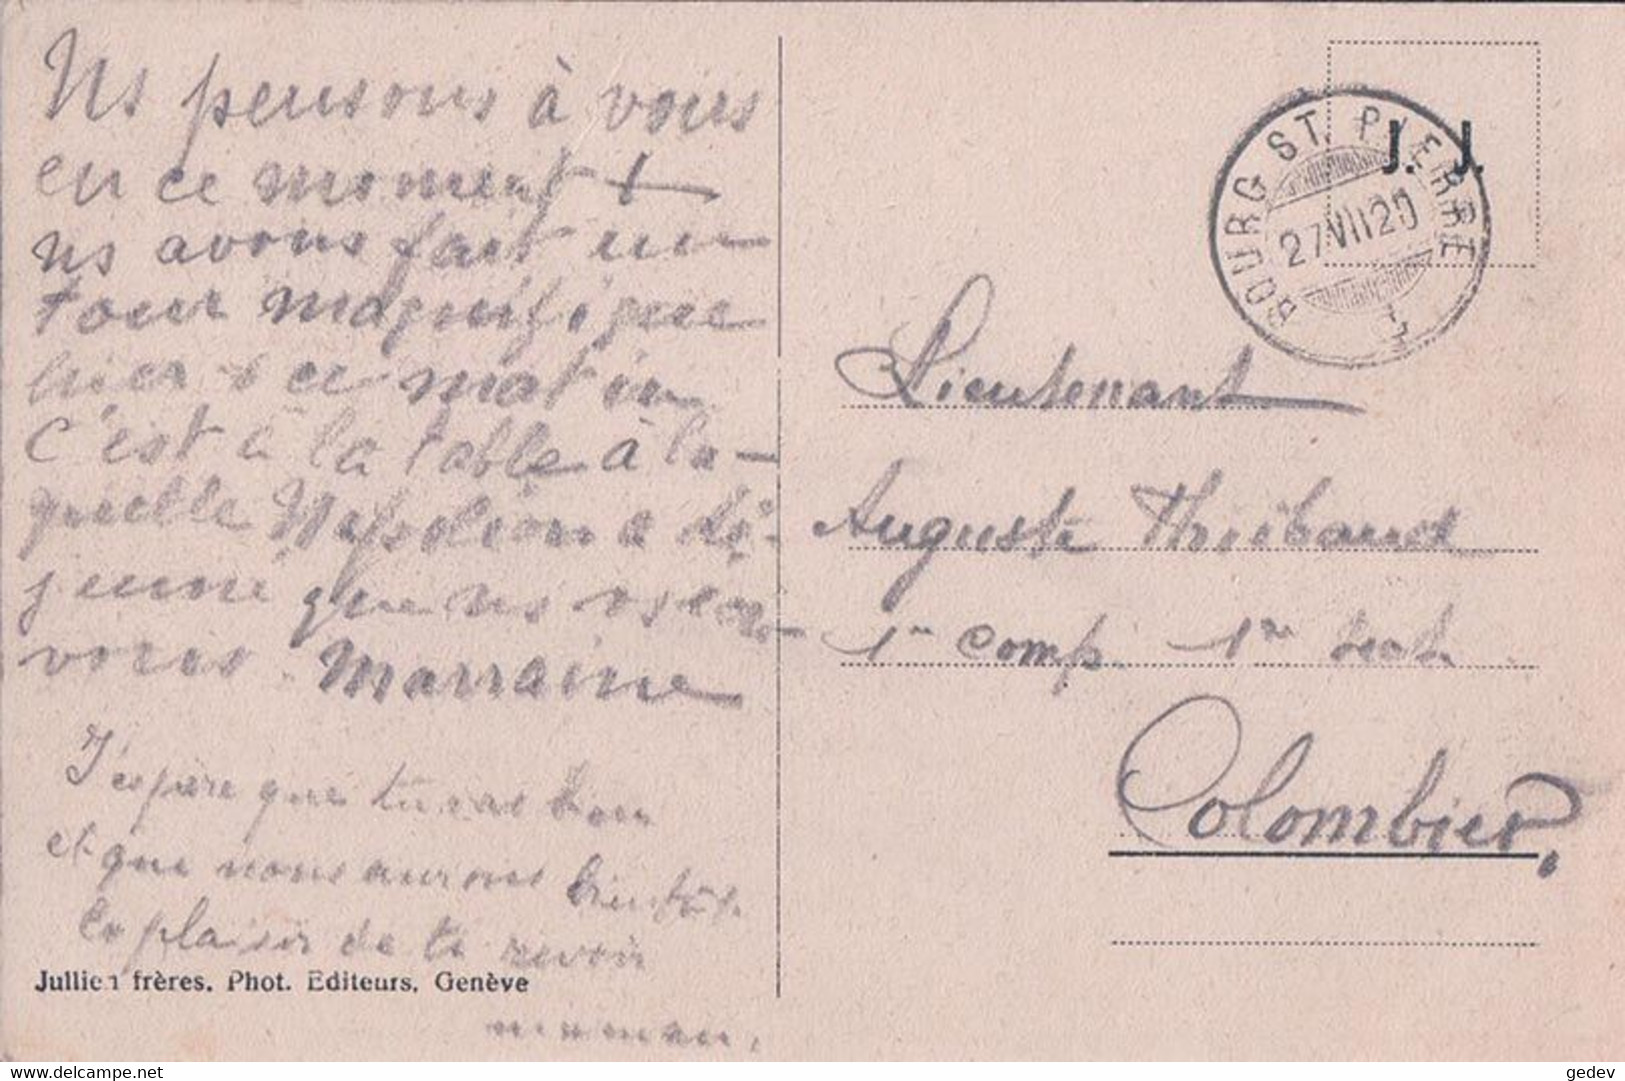 Ns pensons à vous
en ce moment &
ns avons fait un
tour magnifique
hier & ce matin
C'est à la table à la-
quelle Napoléon a dé-
jeuné que ns
vous. Marraine
J'espère que tu vas bien
et que nous aurons bientôt
le plaisir de te revoir
maman.
Jullien frères, Phot. Editeurs, Genève
J. J.
BOURG ST. PIERRE
27 VII 20
Lieutenant
Auguste Thiébaud
1re Comp. 1re sect.
Colombier.
delcampe.net
gedev